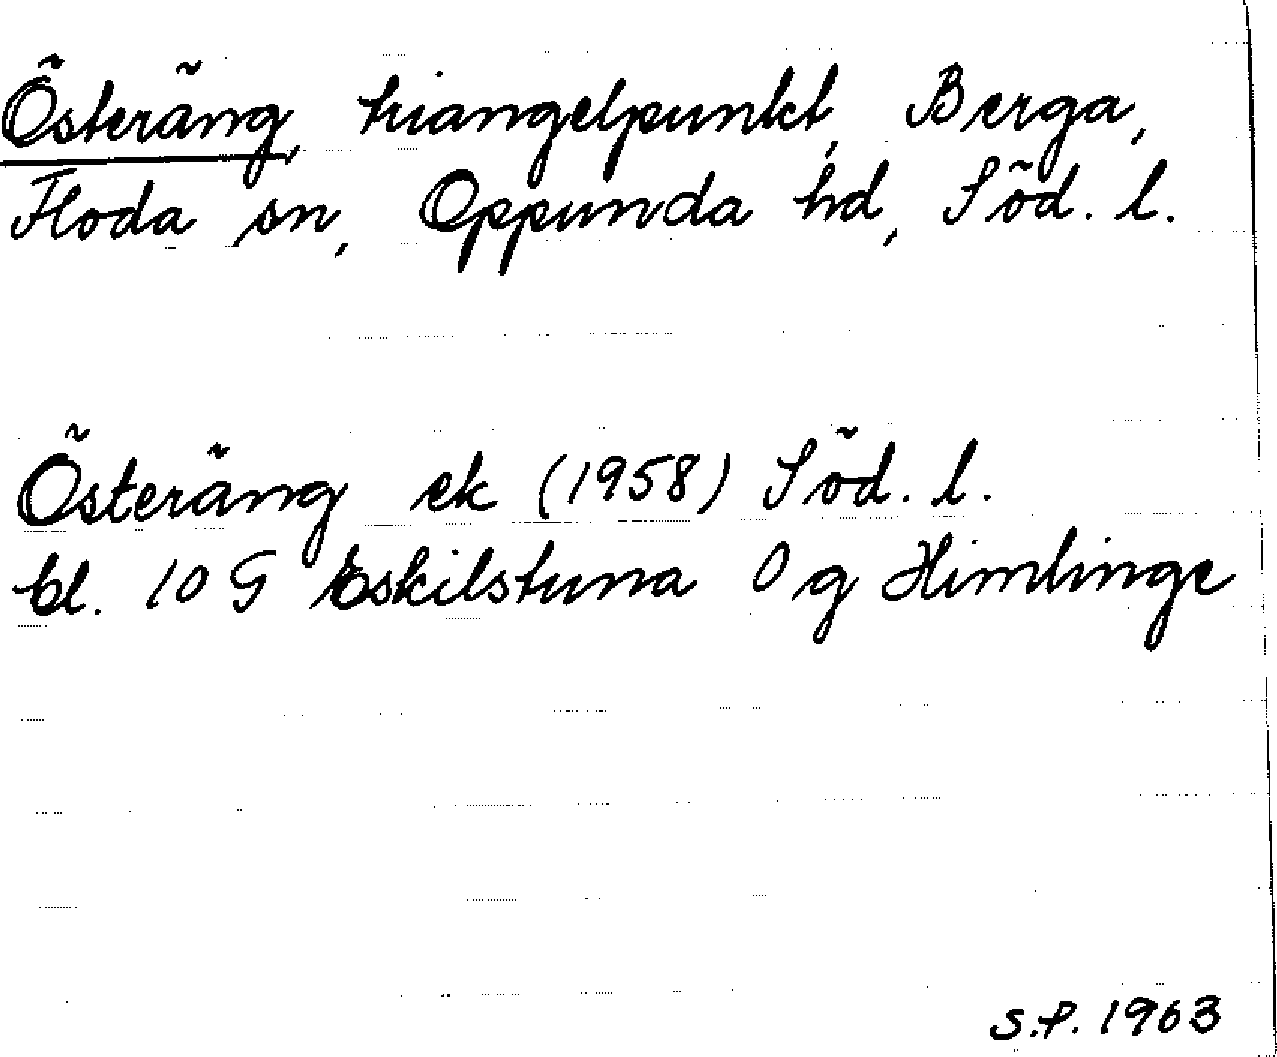 Österäng, triangelpunkt, Berga,
Floda sn, Oppunda hd, Söd. l.
Österäng ek (1958) Söd. l.
bl. 10 G Eskilstuna 0 g Himlinge
S.P. 1963